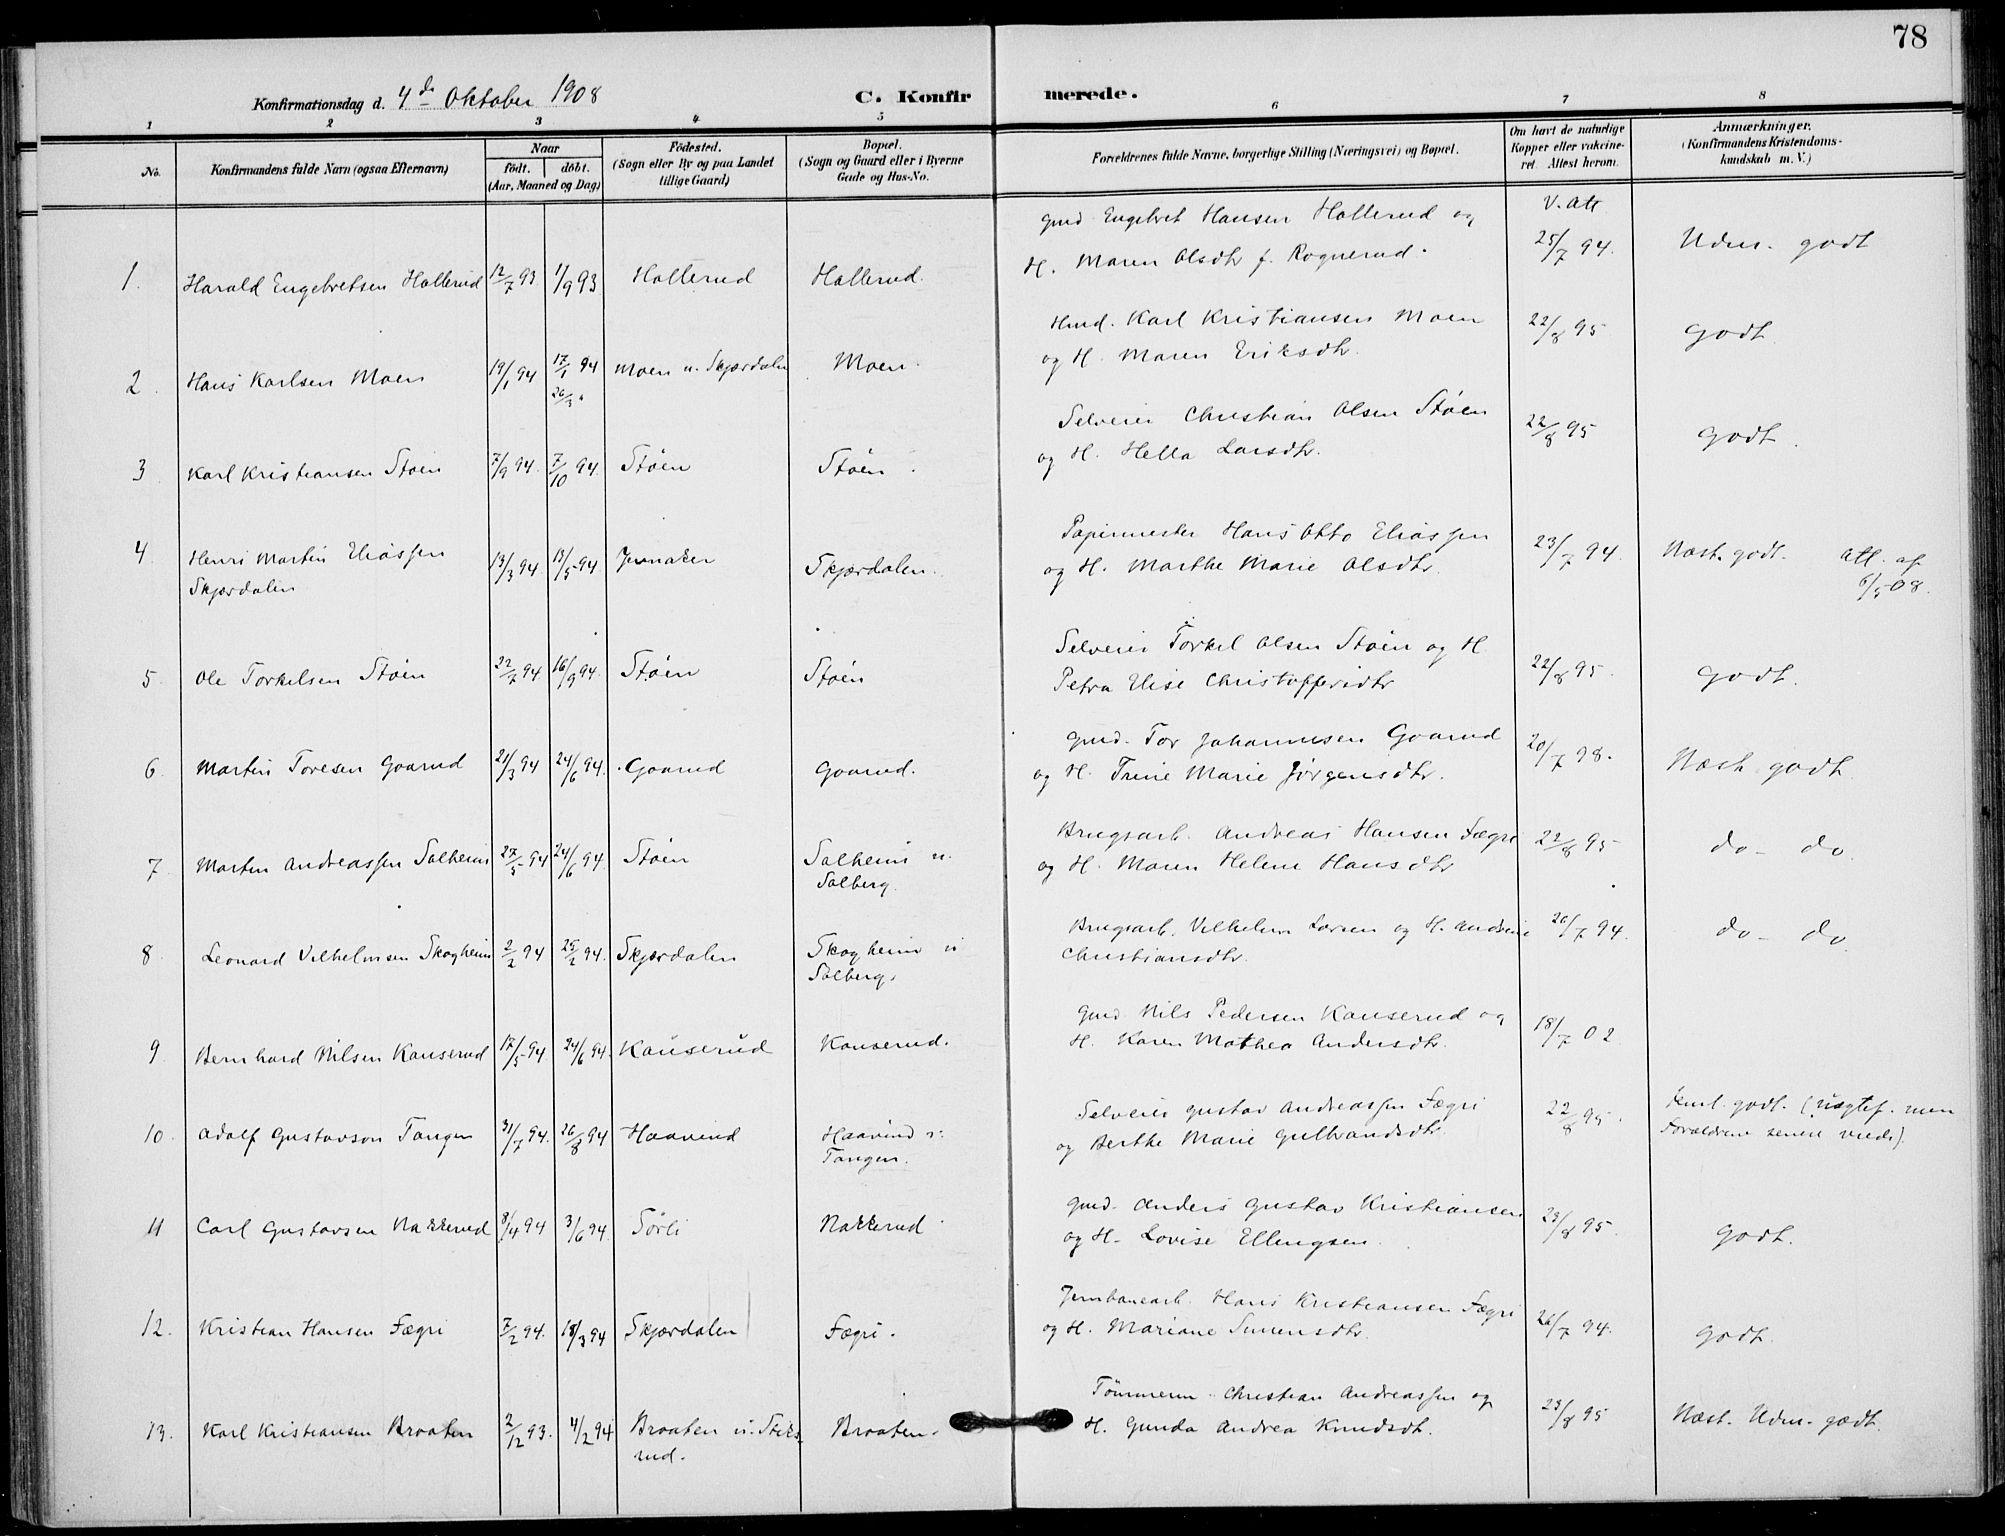 78
Konfirmationsdag d. 4de Oktober 1908
C. Konfirmerede.
1 2 3 4 5 6 7 8
No.
Konfirmandens fulde Navn (ogsaa Efternavn)
Naar
født. døbt.
(Aar, Maaned og Dag)
Fødested.
(Sogn eller By og paa Landet
tillige Gaard)
Bopæl.
(Sogn og Gaard eller i Byerne
Gade og Hus-No.
Forældrenes fulde Navne, borgerlige Stilling (Næringsvei) og Bopæl.
Om havt de naturlige
Kopper eller vakcine-
ret. Attest herom.
Anmærkninger.
(Konfirmandens Kristendoms-
kundskab m. V.)
V. Att
Gmd. Engebret Hansen Hallerud og
H. Maren Olsdtr f. Rognerud.
1. Harald Engebretsen Hallerud 12/7 93 1/9 93 Hallerud Hallerud. 25/7 94. Udm. godt
Hmd. Karl Kristiansen Moen
og H. Maren Eriksdtr.
2. Hans Karlsen Moen 19/1 94 17/1 94 Moen u. Skjærdalen Moen. 22/8 95 Godt.
26/3 "
Selveier Christian Olsen Støen
og H. Hella Larsdtr.
3 Karl Kristiansen Støen 7/9 94. 7/10 94. Støen Støen. 22/8 95 Godt.
Papirmester Hans Otto Eliassen
og H. Marthe Marie Olsdtr.
4. Henri Martin Eliassen 13/3 94 13/5 94 Jevnaker Skjærdalen. 23/7 94. Næst. godt. Att. af
Skjærdalen
6/5 08.
Selveier Torkel Olsen Støen og H.
Petra Elise Christoffersdtr
5. Ole Torkelsen Støen 22/7 94 16/9 94. Støen Støen 22/8 95. Godt.
Gmd. Tor Johannesen Gaarud
og H. Trine Marie Jørgensdtr.
6. Martin Toresen Gaarud 21/3 94 24/6 94. Gaarud Gaarud. 20/7 98. Næst. godt.
Brugsarb. Andreas Hansen Fægri
og H. Maren Helene Hansdtr
7. Morten Andreassen Solheim 27/5 94 24/6 94. Støen Solheim u.
Solberg. 22/8 95 do - do.
Brugsarb. Vilhelm Larsen og H. Andrine
Christiansdtr.
8. Leonard Vilhelmsen Skogheim 2/2 94 25/2 94. Skjærdalen Skogheim u
Solberg. 20/7 94. do - do.
Gmd. Nils Pedersen Kanserud og
H. Karen Mathea Andersdtr.
9. Bernhard Nilsen Kanserud 17/5 94. 24/6 94. Kanserud Kanserud. 18/7 02
Selveier Gustav Andreassen Fægri
og Berthe Marie Gulbrandsdtr
10. Adolf Gustavson Tangen 31/7 94. 26/8 94 Haavind Haavind u.
Tangen. 22/8 95. Teml. godt. (Uægtef. men
Forældrene senere viede).
Gmd. Anders Gustav Kristiansen
og H. Lovise Ellingsen.
11 Carl Gustavsen Nakkerud 8/4 94 3/6 94. Sørli Nakkerud 23/8 95. Godt.
Jernbanearb. Hans Kristiansen Fægri
og H. Mariane Simensdtr.
12. Kristian Hansen Fægri 7/2 94. 18/3 94 Skjærdalen Fægri. 26/7 94. Godt.
Tømmerm. Christian Andreassen og
H. Gunda Andrea Knudsdt.
13. Karl Kristiansen Braaten 2/12 93. 4/2 94 Braaten u. Stiks-
rud. Braaten. 23/8 95 Næst. Udm. godt.